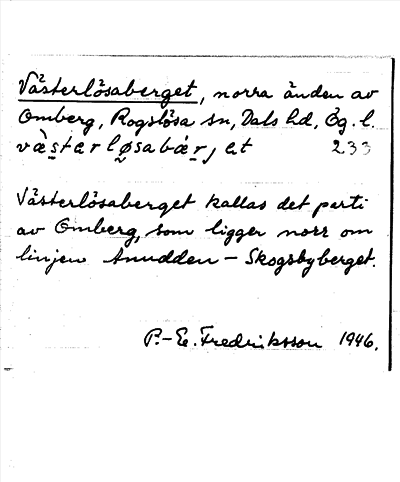 Västerlösaberget, norra änden av
Omberg, Rogslösa sn, Dals hd, Ög. l.
væ̀stərlø̀sabǽrjət 233
Västerlösaberget kallas det parti
av Omberg, som ligger norr om
linjen Anudden - Skogsbyberget.
P.-E. Fredriksson 1946.